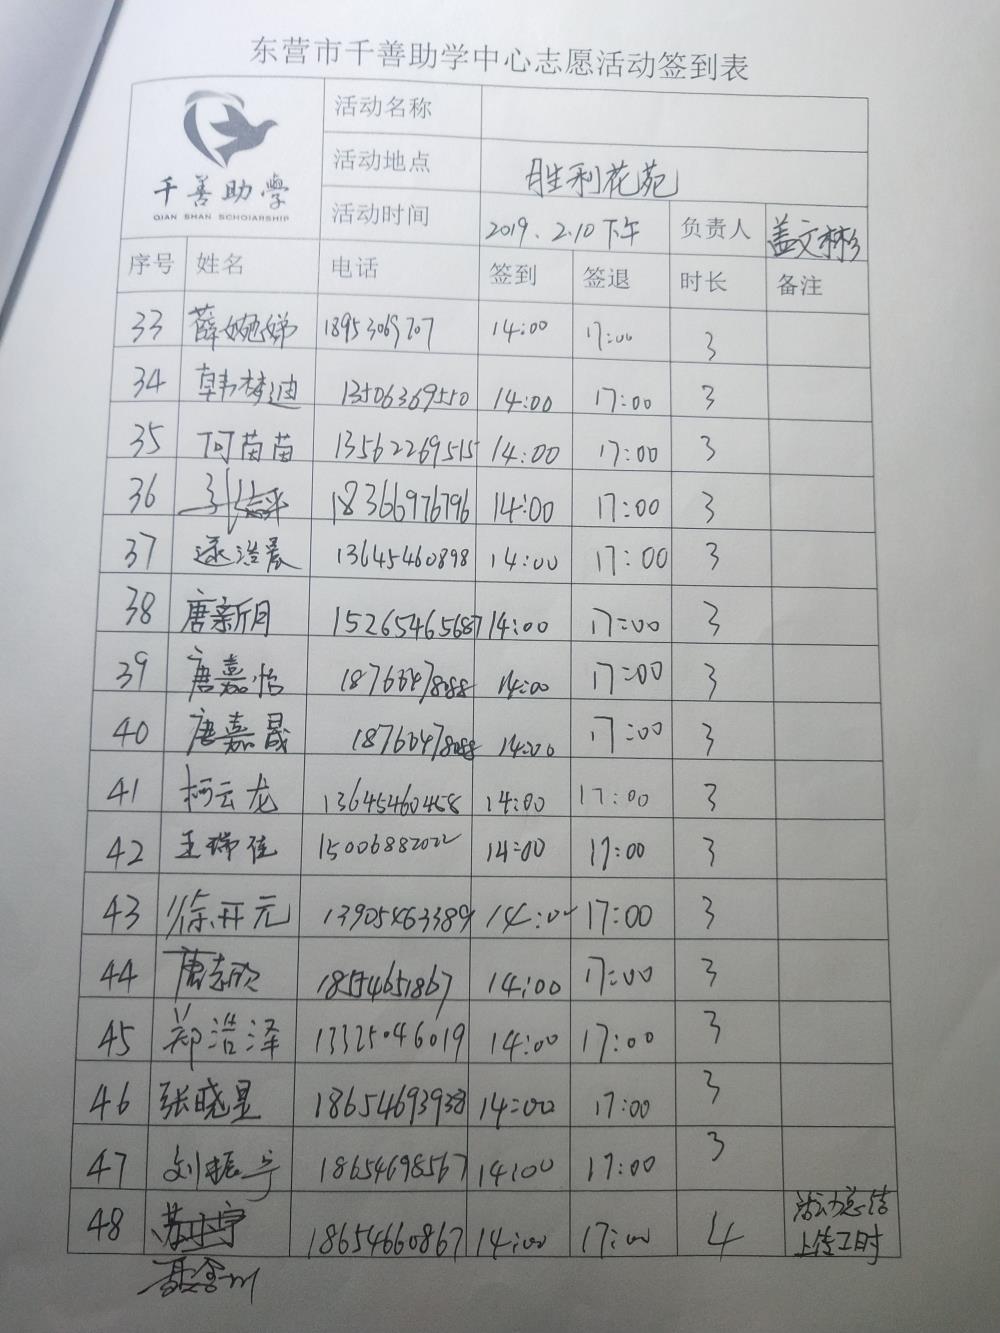 东营市千善助学中心志愿活动签到表
千善助學
QIAN SHAN SCHOIARSHIP
活动名称
活动地点 胜利花苑
活动时间 2019.2.10下午 负责人 盖文彬
序号 姓名 电话 签到 签退 时长 备注
33 薛婉娣 18953069707 14:00 17:00 3
34 韩梦迪 13506369550 14:00 17:00 3
35 何苗苗 13562269515 14:00 17:00 3
36 18366976796 14:00 17:00 3
37 逯浩晨 13645460898 14:00 17:00 3
38 唐新月 15265465687 14:00 17:00 3
39 唐嘉怡 14:00 17:00 3
40 唐嘉晟 14:00 17:00 3
41 柯云龙 13645460458 14:00 17:00 3
42 王瑞佳 15006882022 14:00 17:00 3
43 徐开元 13905463389 14:00 17:00 3
44 唐志欣 18554651867 14:00 17:00 3
45 郑浩泽 13325046019 14:00 17:00 3
46 张晓昱 18654693938 14:00 17:00 3
47 刘振宁 18654698567 14:00 17:00 3
48 18654660867 14:00 17:00 4 活动总结
上传工时